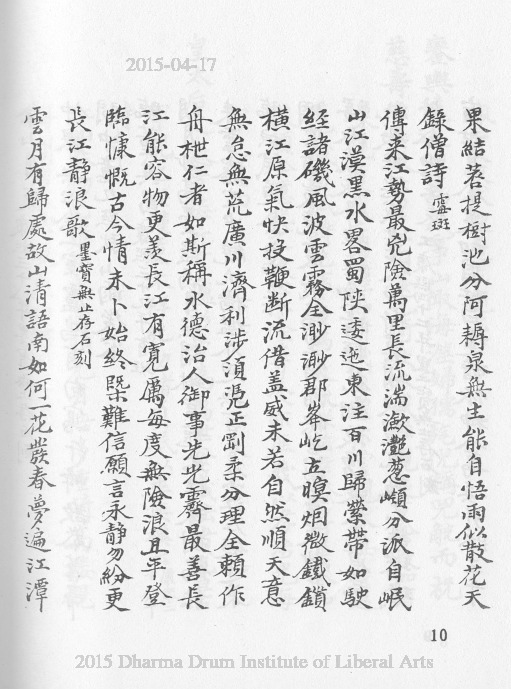 2015-04-17
果結菩提樹池分阿耨泉無生能自悟雨似散花天
錄僧詩 寔斑
傳来江勢最兇險萬里長流湍潄灧葱嶺分派自岷
山江漠黒水畧蜀陝逶迤東注百川歸縈帶如駛
經諸磯風波雲霧全渺渺郡峯屹立暝烟微鐵鎖
横江原氣快投鞭断流借盖威未若自然順天意
無怠無荒廣川濟利涉湏凴正剛柔分理全頼作
舟枻仁者如斯稱水德治人御事光光霽最善長
江能容物更羡長江有寛厲每度無險浪且平登
臨慷慨古今情未卜始終槩難信願言永静勿紛更
長江静浪歌 墨寶無止存石刻
雲月有歸處故山清語南如何一花發春夢遍江潭
10
2015 Dharma Drum Institute of Liberal Arts